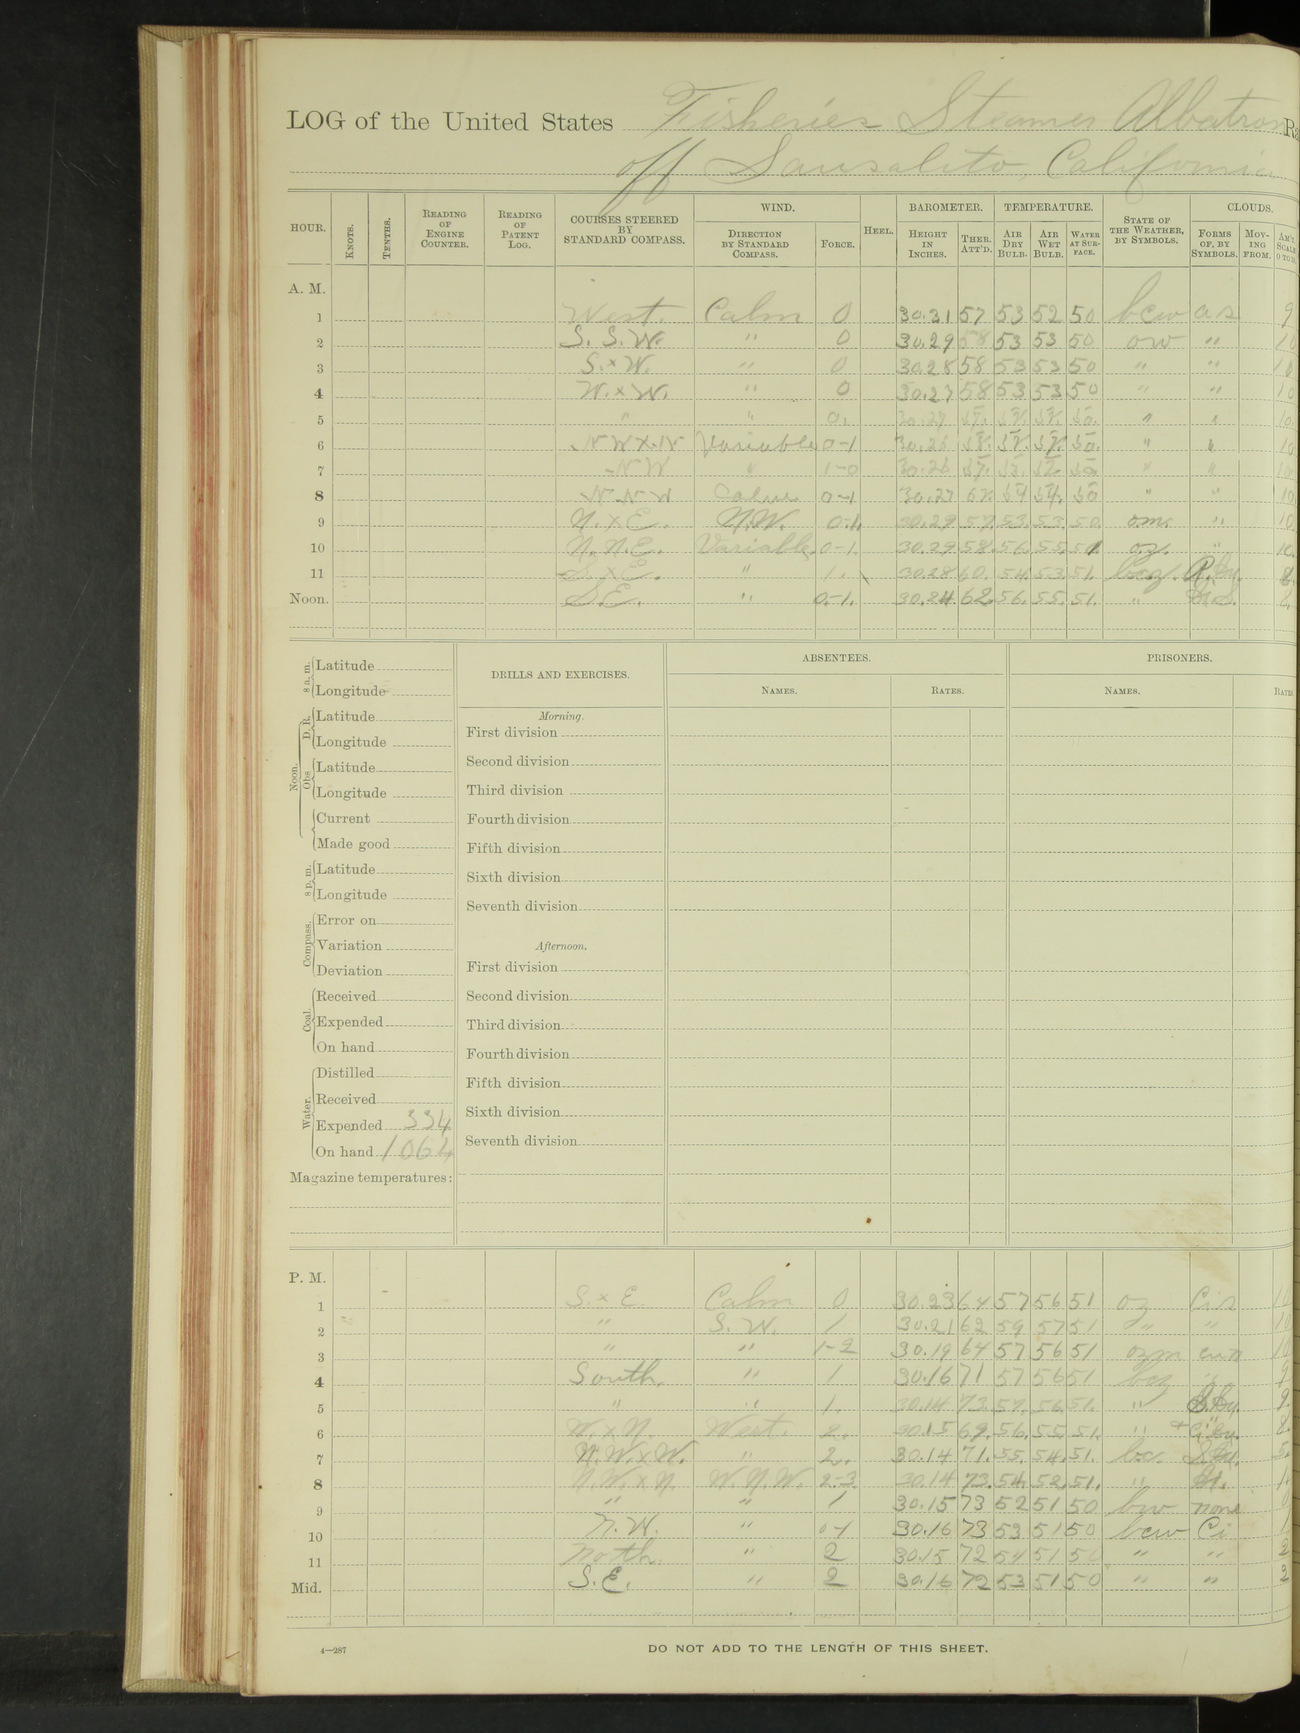 LOG of the United States Fisheries Steamer Albatross Ra
off Sausalito, California
HOUR. KNOTS. TENTHS. READING OF ENGINE COUNTER. READING OF PATENT LOG. COURSES STEERED BY STANDARD COMPASS. WIND. DIRECTION BY STANDARD COMPASS. FORCE. HEEL. BAROMETER. HEIGHT IN INCHES. THER. ATT'D. TEMPERATURE. AIR DRY BULB. AIR WET BULB. WATER AT SURFACE. STATE OF THE WEATHER, BY SYMBOLS. CLOUDS. FORMS OF, BY SYMBOLS. MOVING FROM. AM'T. SCALE 0 TO 10.
A. M.
1 West. Calm 0 30.31 57 53 52 50 bcw as 9
2 S. S. W. " 0 30.29 58 53 53 50 ow " 10
3 S. x W. " 0 30.28 58 53 53 50 " " 10
4 W. x W. " 0 30.27 58 53 53 50 " " 10
5 " " 0. 30.27 50. " " 10.
6 N W x N Variable 0-1 30.26 50. " " 10
7 N W " 1-0 30.26 50 " " 10.
8 N N W Calm 0-1 30.27 50 " " 10
9 N. x E. N.W. 0-1. 30.29 57. 53. 53. 50. om. " 10.
10 N. N. E. Variable. 0-1. 30.29 58. 56. 55. 51 oz. " 10.
11 S. x E. " 1. 30.28 60. 54. 53. 51. bcz.
Noon. S.E. " 0-1. 30.24 62. 56. 55. 51. " 2.
8 a. m. Latitude
Longitude
Noon. D. R. Latitude
Longitude
Obs. Latitude
Longitude
Current
Made good
8 p. m. Latitude
Longitude
Compass. Error on
Variation
Deviation
Coal. Received
Expended
On hand
Water. Distilled
Received
Expended 334
On hand 1064
Magazine temperatures:
DRILLS AND EXERCISES.
Morning.
First division
Second division
Third division
Fourth division
Fifth division
Sixth division
Seventh division
Afternoon.
First division
Second division
Third division
Fourth division
Fifth division
Sixth division
Seventh division
ABSENTEES.
NAMES. RATES.
PRISONERS.
NAMES. RATES
P. M.
1 S. x E. Calm 0 30.23 64 57 56 51 oz Cis 10
2 " S. W. 1 30.21 62 59 57 51 " " 10
3 " " 1-2 30.19 64 57 56 51 ozm cun 10
4 South. " 1 30.16 71 57 56 51 bcz " 9
5 " " 1. 30.14 73. 57. 56. 51. " 9.
6 W. x N. West. 2. 30.15 69. 56. 55. 51. " 8.
7 N. W. x W. " 2. 30.14 71. 55. 54. 51. bc. 5.
8 N. W. x N. W. N. W. 2-3 30.14 73. 54. 52. 51. " 1.
9 " " 1 30.15 73 52 51 50 bw none 0
10 N. W. " 0-1 30.16 73 53 51 50 bcw Ci 1
11 North. " 2 30.15 72 54 51 50 " " 2
Mid. S. E. " 2 30.16 72 53 51 50 " " 2
4—287
DO NOT ADD TO THE LENGTH OF THIS SHEET.